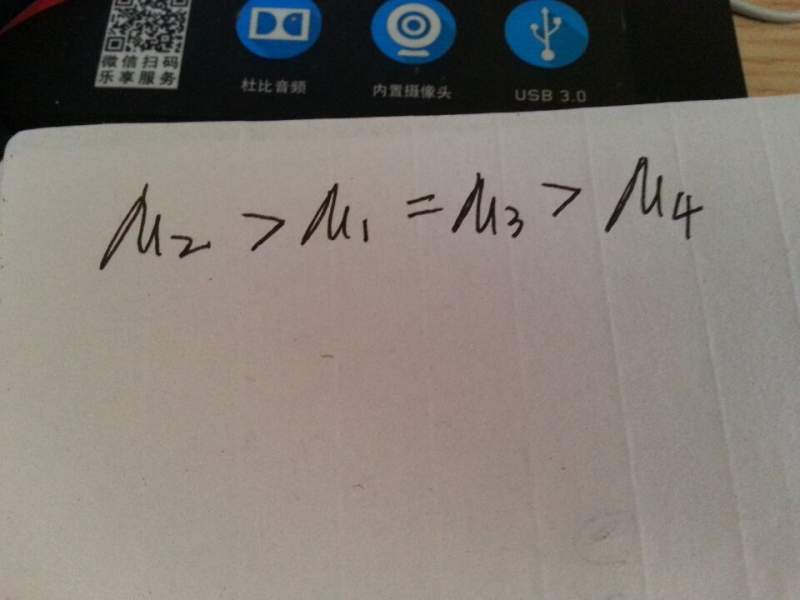 微信扫码
乐享服务
杜比音频
内置摄像头
USB 3.0
μ₂ > μ₁ = μ₃ > μ₄